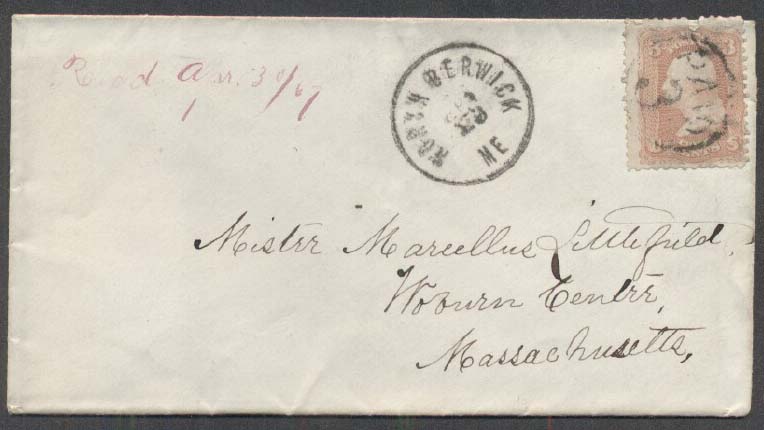 Recd. Apr. 30/67
NORTH BERWICK
ME
PAID
3
3
Mister Marcellus Littlefield,
Woburn Centre,
Massachusetts,